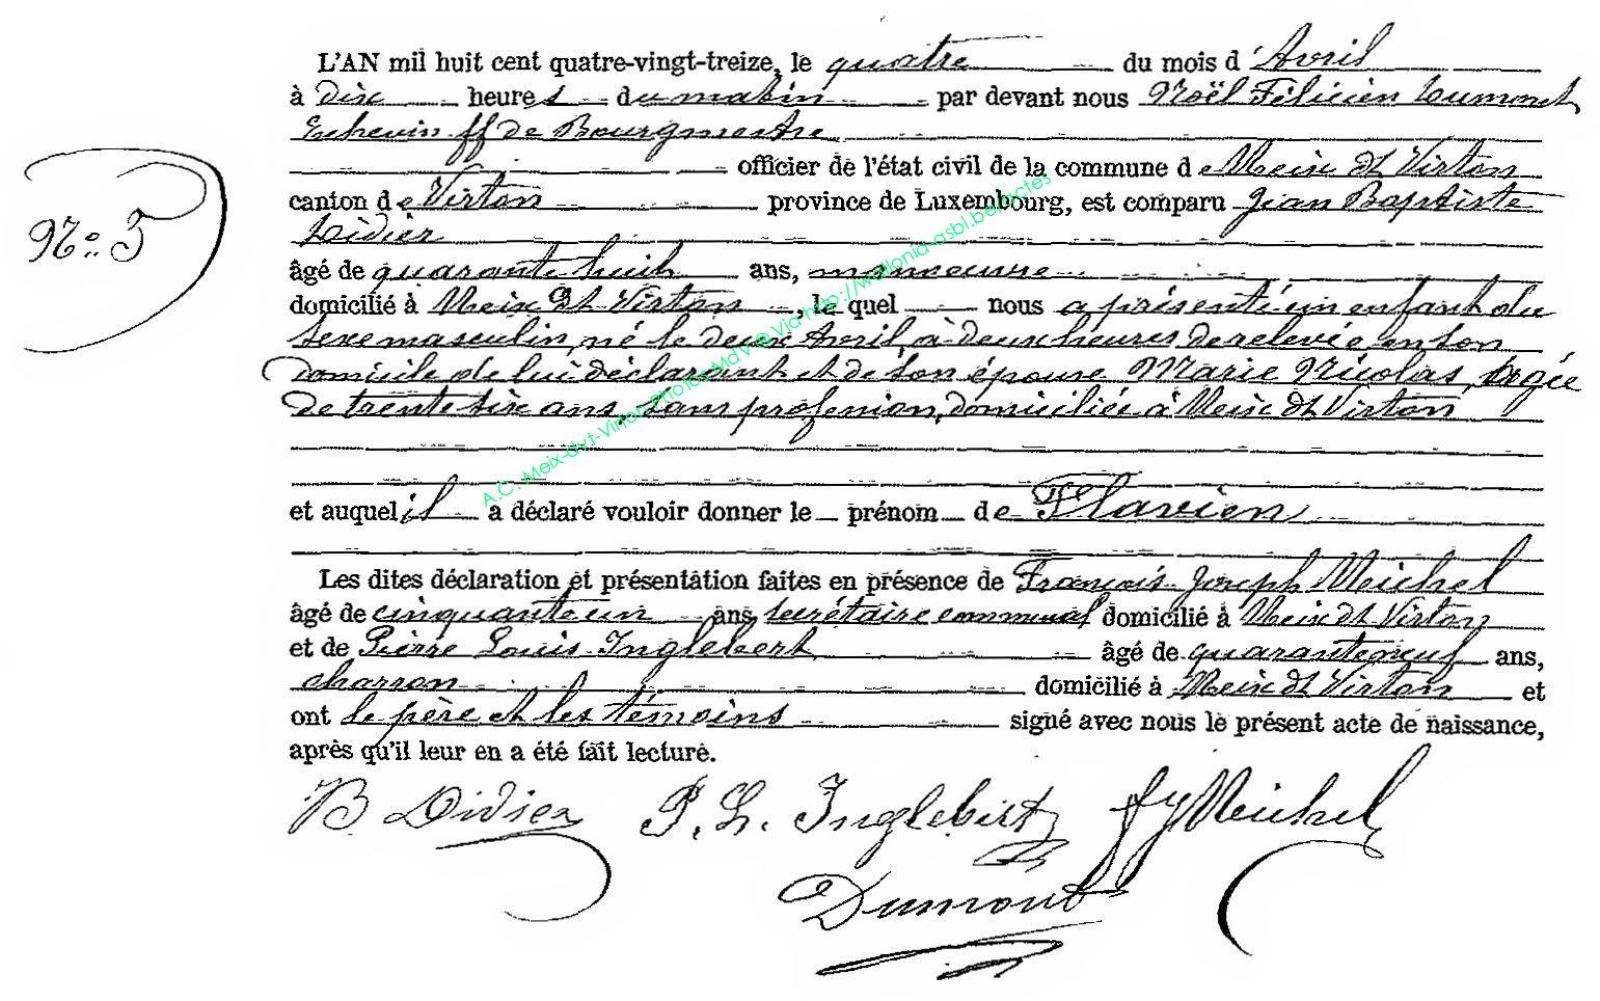 L'AN mil huit cent quatre-vingt-treize, le quatre du mois d'Avril
à dix heures du matin par devant nous Noël Félicien Dumont
Echevin ff de Bourgmestre
officier de l'état civil de la commune de Meix dt Virton
N° 5
canton de Virton province de Luxembourg, est comparu Jean Baptiste
Didier
âgé de quarante huit ans, manoeuvre
domicilié à Meix dt Virton, le quel nous a présenté un enfant du
sexe masculin, né le deux Avril, à deux heures de relevée en son
domicile de lui déclarant et de son épouse Marie Nicolas, âgée
de trente six ans, sans profession, domiciliée à Meix dt Virton
et auquel il a déclaré vouloir donner le prénom de Flavien
Les dites déclaration et présentation faites en présence de François Joseph Meichel
âgé de cinquante un ans, secrétaire communal domicilié à Meix dt Virton
et de Pierre Louis Inglebert âgé de quarante neuf ans,
charron domicilié à Meix dt Virton et
ont le père et les témoins signé avec nous le présent acte de naissance,
après qu'il leur en a été fait lecture.
JB Didier P. L. Inglebert fj Meichel
Dumont
A.C. Meix-dvt-Virton Photos MdV @ Via http://wallonia-asbl.be/actes